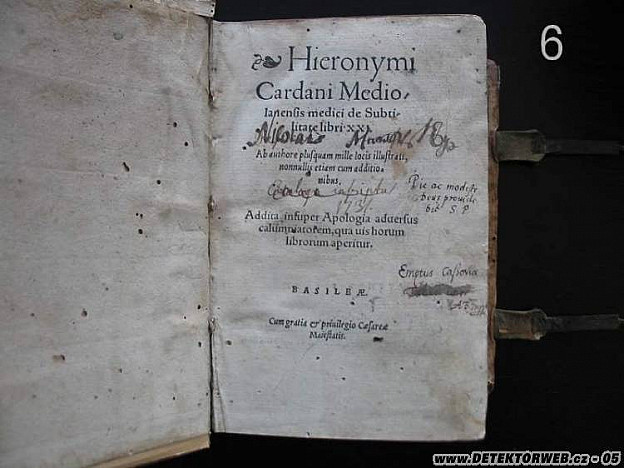 6
Hieronymi
Cardani Medio,
lanensis medici de Subti-
litate libri XXI.
Nicolais
Ab authore plusquam mille locis illustrati,
nonnullis etiam cum additio-
nibus.
Pie ac modeste
1731.
S. P
Addita, insuper Apologia aduersus
calumniatorem, qua uis horum
librorum aperitur.
Emptus Casioviæ
BASILEÆ
Cum gratia & priuilegio Cæsareæ
Maiestatis.
www.DETEKTORWEB.cz - 05